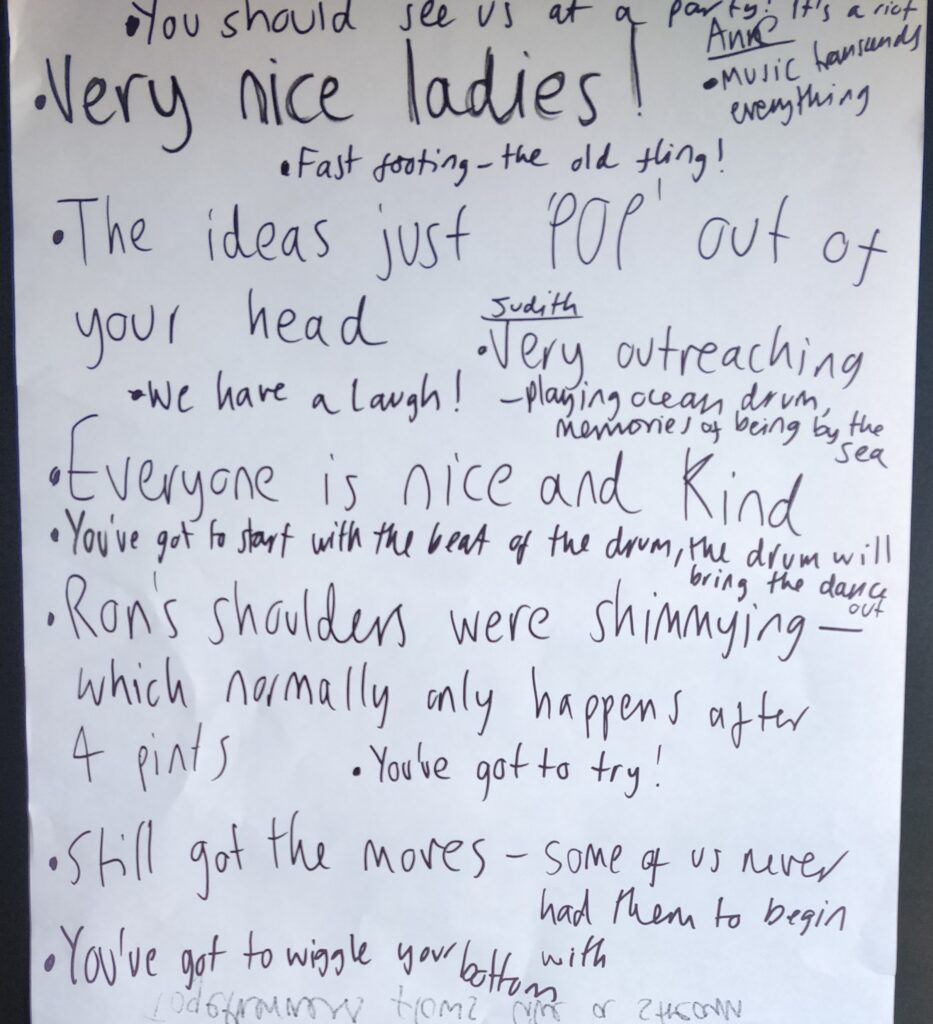 •You should see us at a party! It's a riot
Ann
•Very nice ladies!
•Music transcends
everything
•Fast footing – the old fling!
•The ideas just 'POP' out of
your head
Judith
•Very outreaching
– playing ocean drum,
memories of being by the
sea
•We have a laugh!
•Everyone is nice and Kind
•You've got to start with the beat of the drum, the drum will
bring the dance
out
•Ron's shoulders were shimmying –
which normally only happens after
4 pints
•You've got to try!
•Still got the moves – some of us never
had them to begin
with
•You've got to wiggle your bottom